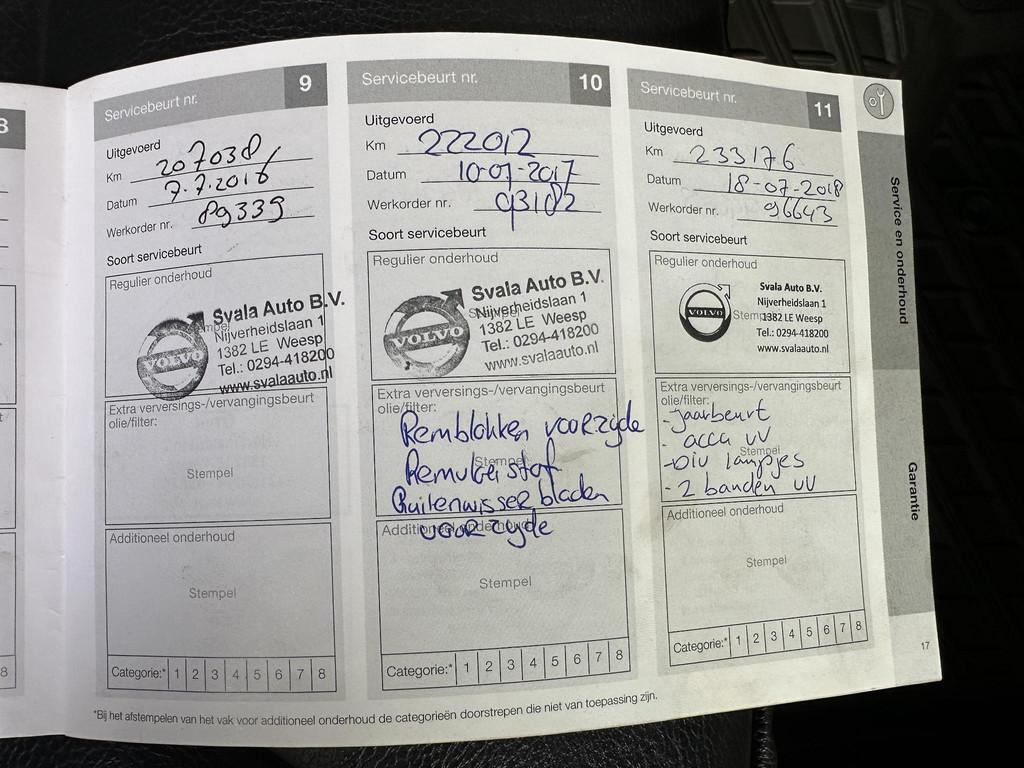 8
Servicebeurt nr. 9
Uitgevoerd
Km 207038
Datum 7.7.2016
Werkorder nr. 89339
Soort servicebeurt
Regulier onderhoud
Stempel
VOLVO
Svala Auto B.V.
Nijverheidslaan 1
1382 LE Weesp
Tel.: 0294-418200
www.svalaauto.nl
Extra verversings-/vervangingsbeurt
olie/filter:
Stempel
Additioneel onderhoud
Stempel
Categorie:* 1 2 3 4 5 6 7 8
Servicebeurt nr. 10
Uitgevoerd
Km 222012
Datum 10-07-2017
Werkorder nr. 93102
Soort servicebeurt
Regulier onderhoud
Stempel
VOLVO
Svala Auto B.V.
Nijverheidslaan 1
1382 LE Weesp
Tel.: 0294-418200
www.svalaauto.nl
Extra verversings-/vervangingsbeurt
olie/filter:
Remblokken voorzijde
Stempel
Remvloeistof
Ruitenwisserbladen
voorzijde
Additioneel onderhoud
Stempel
Categorie:* 1 2 3 4 5 6 7 8
Servicebeurt nr. 11
Uitgevoerd
Km 233176
Datum 18-07-2018
Werkorder nr. 96643
Soort servicebeurt
Regulier onderhoud
Stempel
VOLVO
Svala Auto B.V.
Nijverheidslaan 1
1382 LE Weesp
Tel.: 0294-418200
www.svalaauto.nl
Extra verversings-/vervangingsbeurt
olie/filter:
- jaarbeurt
- accu vv
Stempel
- Div lampjes
- 2 banden vv
Additioneel onderhoud
Stempel
Categorie:* 1 2 3 4 5 6 7 8
*Bij het afstempelen van het vak voor additioneel onderhoud de categorieën doorstrepen die niet van toepassing zijn.
Service en onderhoud
Garantie
17
8